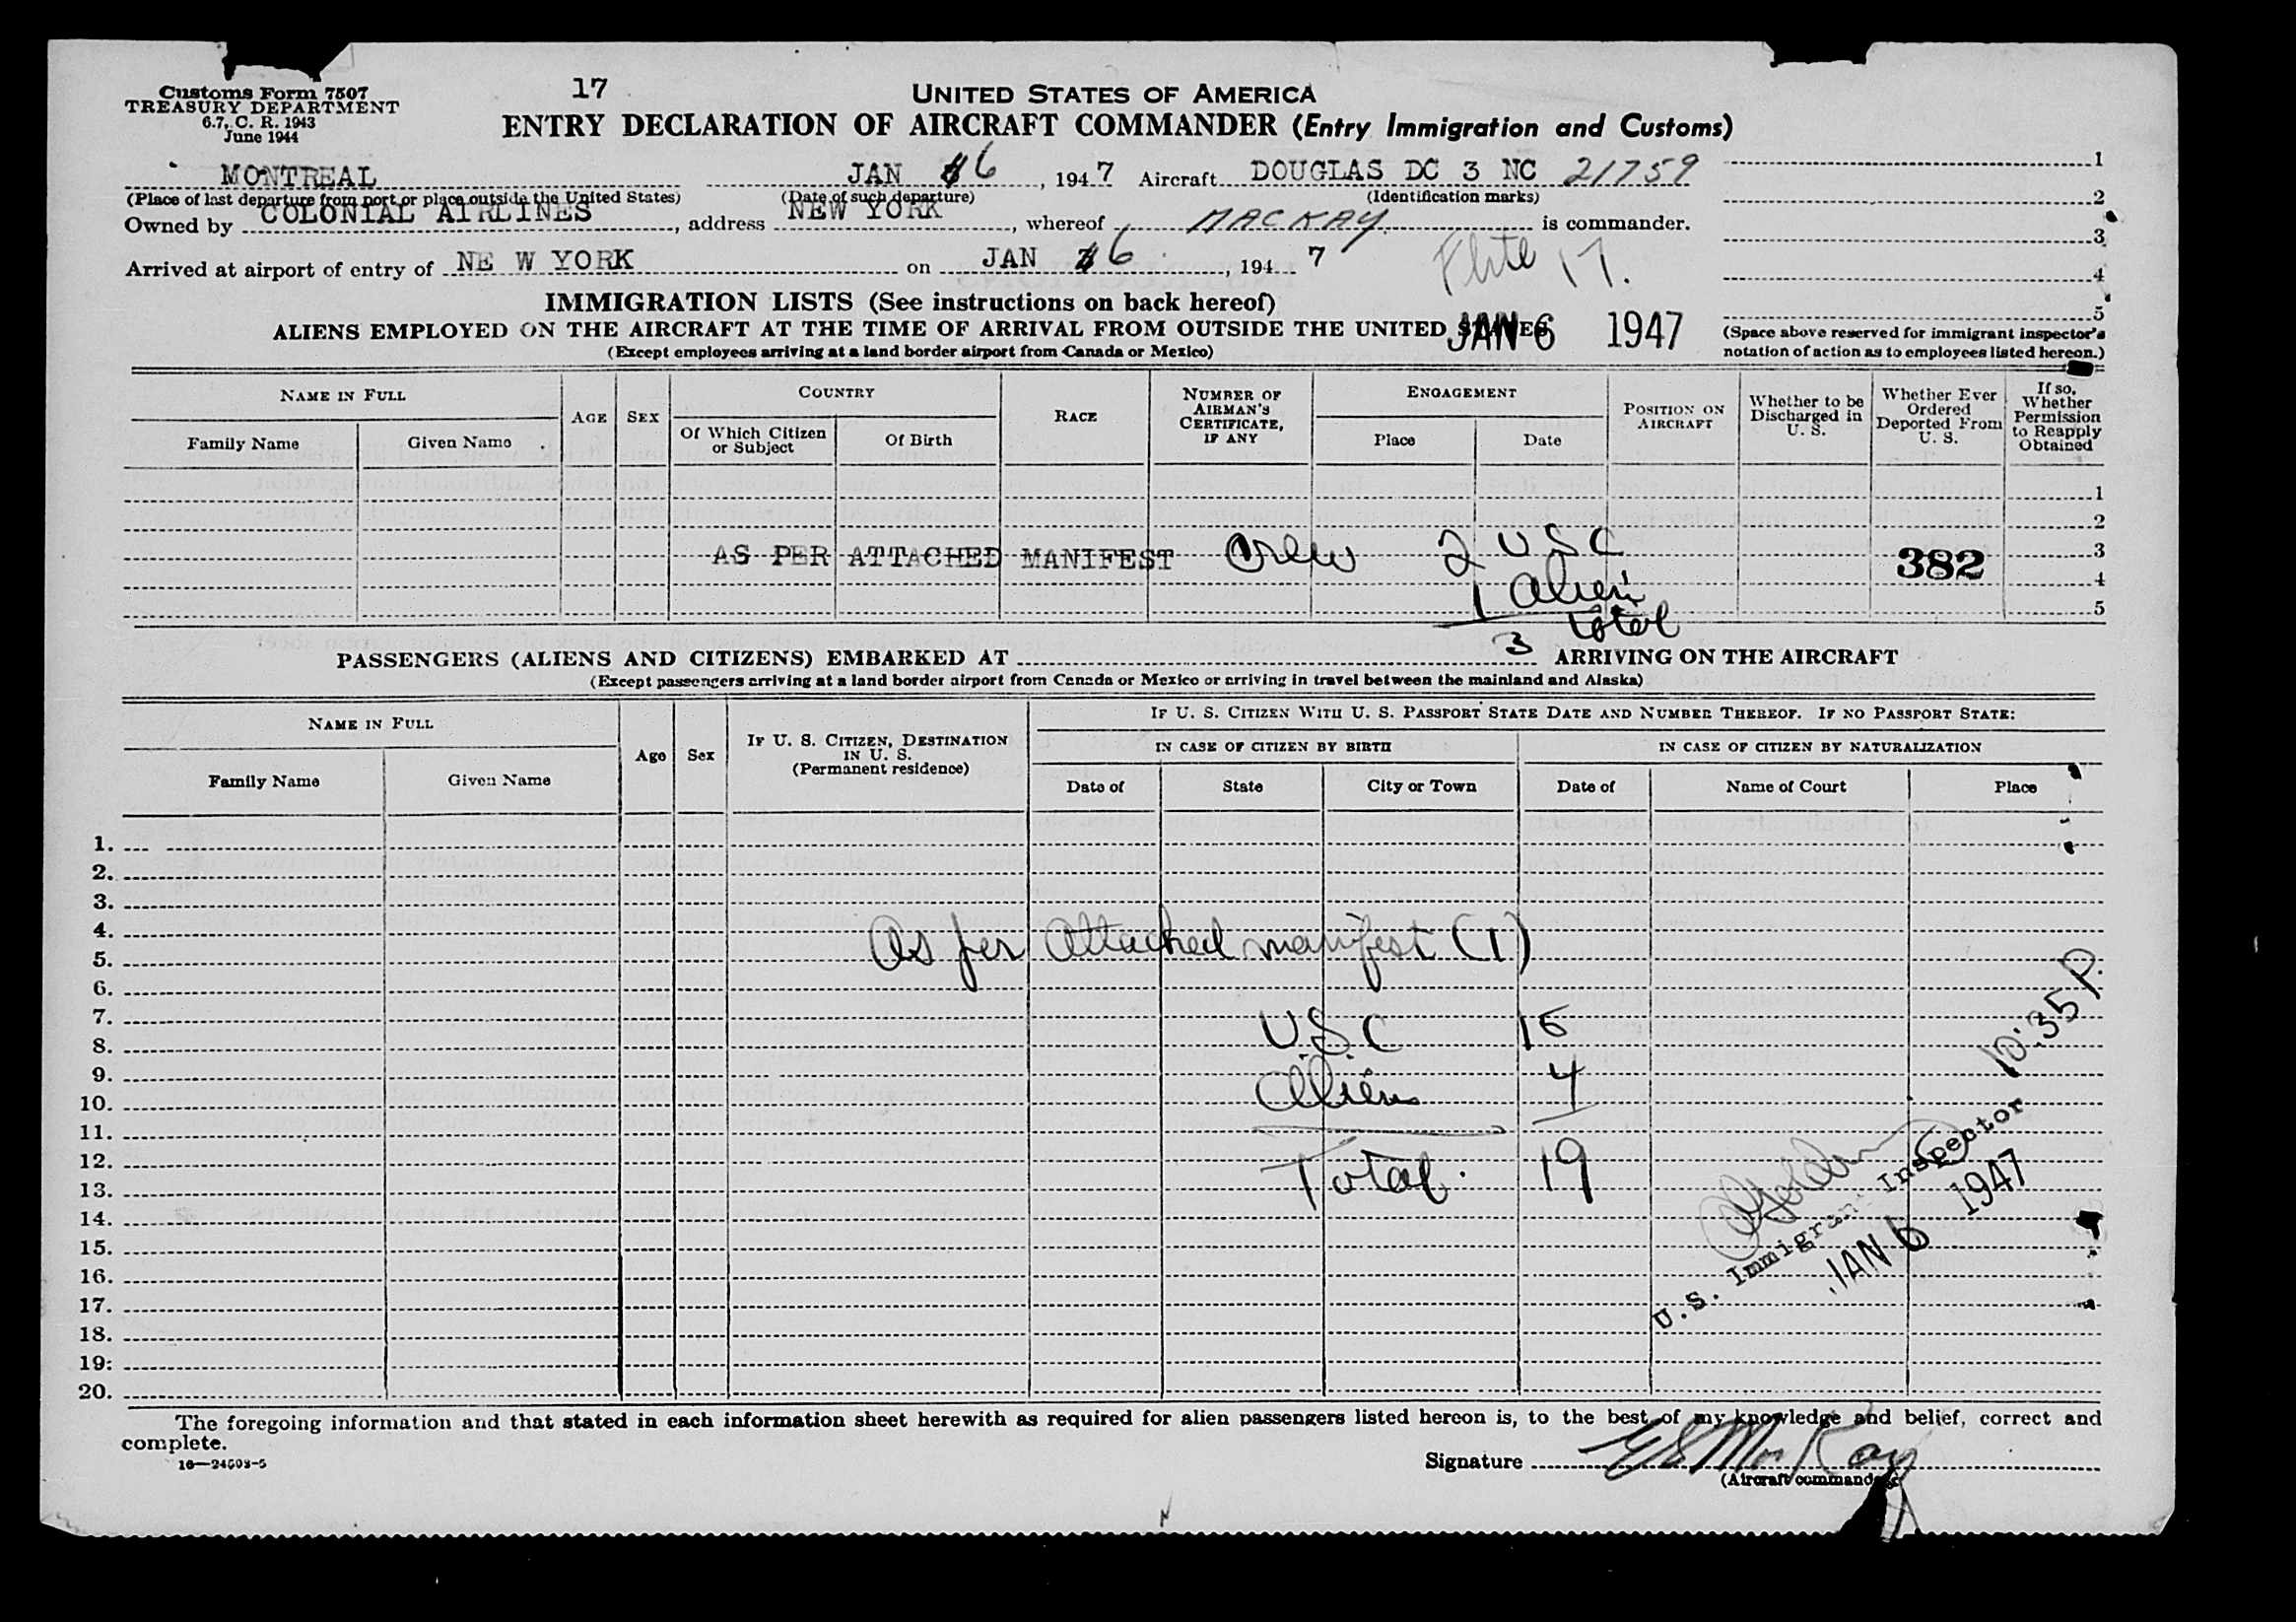 Customs Form 7507
TREASURY DEPARTMENT
6.7, C. R. 1943
June 1944
17
UNITED STATES OF AMERICA
ENTRY DECLARATION OF AIRCRAFT COMMANDER (Entry Immigration and Customs)
MONTREAL JAN 6, 1947 Aircraft DOUGLAS DC 3 NC 21759
(Place of last departure from port or place outside the United States) (Date of such departure) (Identification marks)
Owned by COLONIAL AIRLINES, address NEW YORK, whereof MACKAY is commander.
Arrived at airport of entry of NE W YORK on JAN 6, 194 7
Flite 17.
1
2
3
4
5
(Space above reserved for immigrant inspector's
notation of action as to employees listed hereon.)
IMMIGRATION LISTS (See instructions on back hereof)
ALIENS EMPLOYED ON THE AIRCRAFT AT THE TIME OF ARRIVAL FROM OUTSIDE THE UNITED STATES
JAN 6 1947
(Except employees arriving at a land border airport from Canada or Mexico)
NAME IN FULL
Family Name Given Name
AGE SEX
COUNTRY
Of Which Citizen or Subject Of Birth
RACE
NUMBER OF AIRMAN'S CERTIFICATE, IF ANY
ENGAGEMENT
Place Date
POSITION ON AIRCRAFT
Whether to be Discharged in U. S.
Whether Ever Ordered Deported From U. S.
If so, Whether Permission to Reapply Obtained
1
2
AS PER ATTACHED MANIFEST Crew 2 USC 382 3
1 Alien 4
5
3 total
PASSENGERS (ALIENS AND CITIZENS) EMBARKED AT ARRIVING ON THE AIRCRAFT
(Except passengers arriving at a land border airport from Canada or Mexico or arriving in travel between the mainland and Alaska)
NAME IN FULL
Family Name Given Name
Age Sex
IF U. S. CITIZEN, DESTINATION IN U. S.
(Permanent residence)
IF U. S. CITIZEN WITH U. S. PASSPORT STATE DATE AND NUMBER THEREOF. IF NO PASSPORT STATE:
IN CASE OF CITIZEN BY BIRTH IN CASE OF CITIZEN BY NATURALIZATION
Date of State City or Town Date of Name of Court Place
1.
2.
3.
4.
As per Attached manifest (1)
5.
6.
7.
U.S.C 15
8.
9.
Aliens 4
10.
11.
12.
Total. 19
13.
14.
15.
16.
17.
18.
19.
20.
10:35 P.
U.S. Immigrant Inspector
JAN 6 1947
The foregoing information and that stated in each information sheet herewith as required for alien passengers listed hereon is, to the best of my knowledge and belief, correct and
complete.
16—24508-5
Signature
(Aircraft commander)